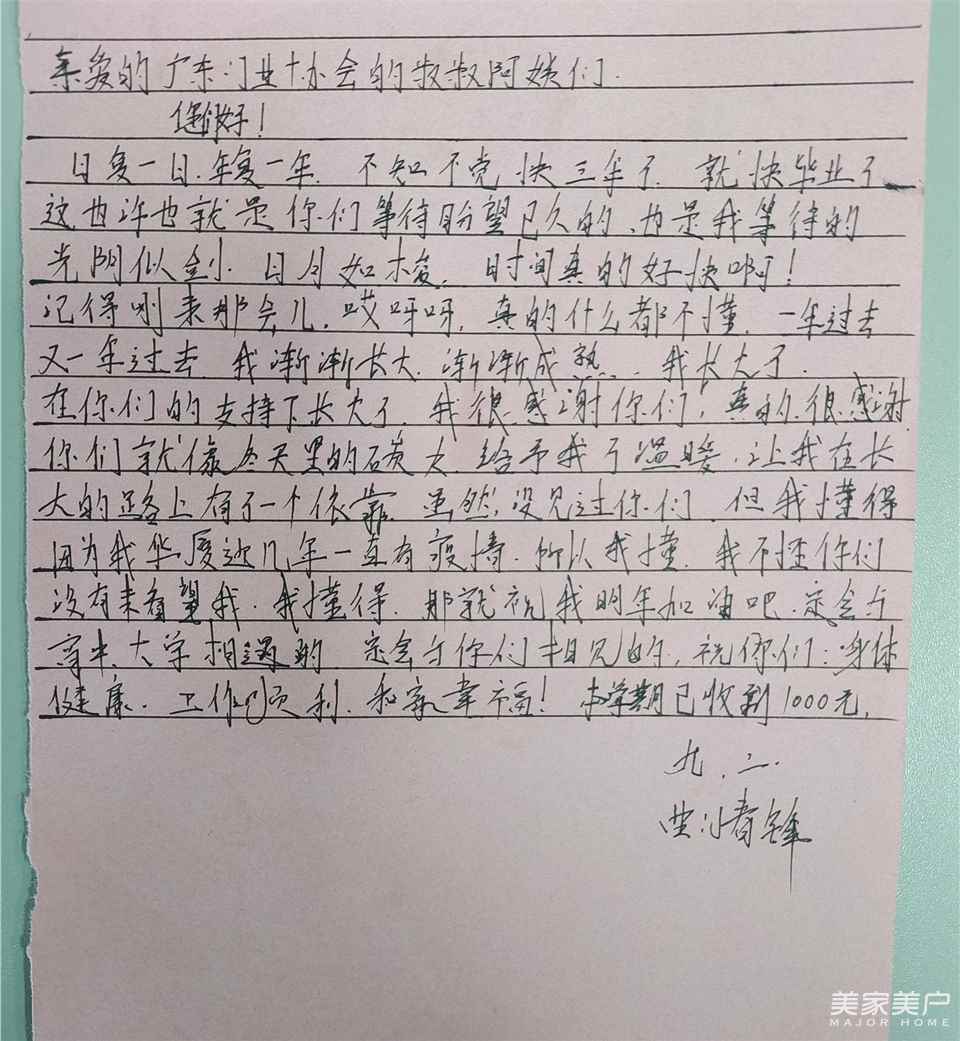 亲爱的广东门业协会的叔叔阿姨们.
您们好!
日复一日.年复一年. 不知不觉快三年了. 就快毕业了
这也许也就是你们等待盼望已久的、也是我等待的
光阴似剑. 日月如梭. 时间真的好快啊!
记得刚来那会儿,哎呀呀,真的什么都不懂. 一年过去
又一年过去.我渐渐长大.渐渐成熟...我长大了.
在你们的支持下长大了.我很感谢你们,真的很感谢.
你们就像冬天里的碳火.给予我了温暖.让我在长
大的路上有了一个依靠.虽然没见过你们.但我懂得
因为我华厦这几年一直有疫情.所以我懂.我不怪你们
没有来看望我.我懂得.那就祝我明年加油吧.定会与
高中.大学相遇的 定会与你们相见的,祝你们:身体
健康.工作顺利.和家幸福! 本学期已收到1000元.
九.二.
春锋
美家美户
MAJOR HOME